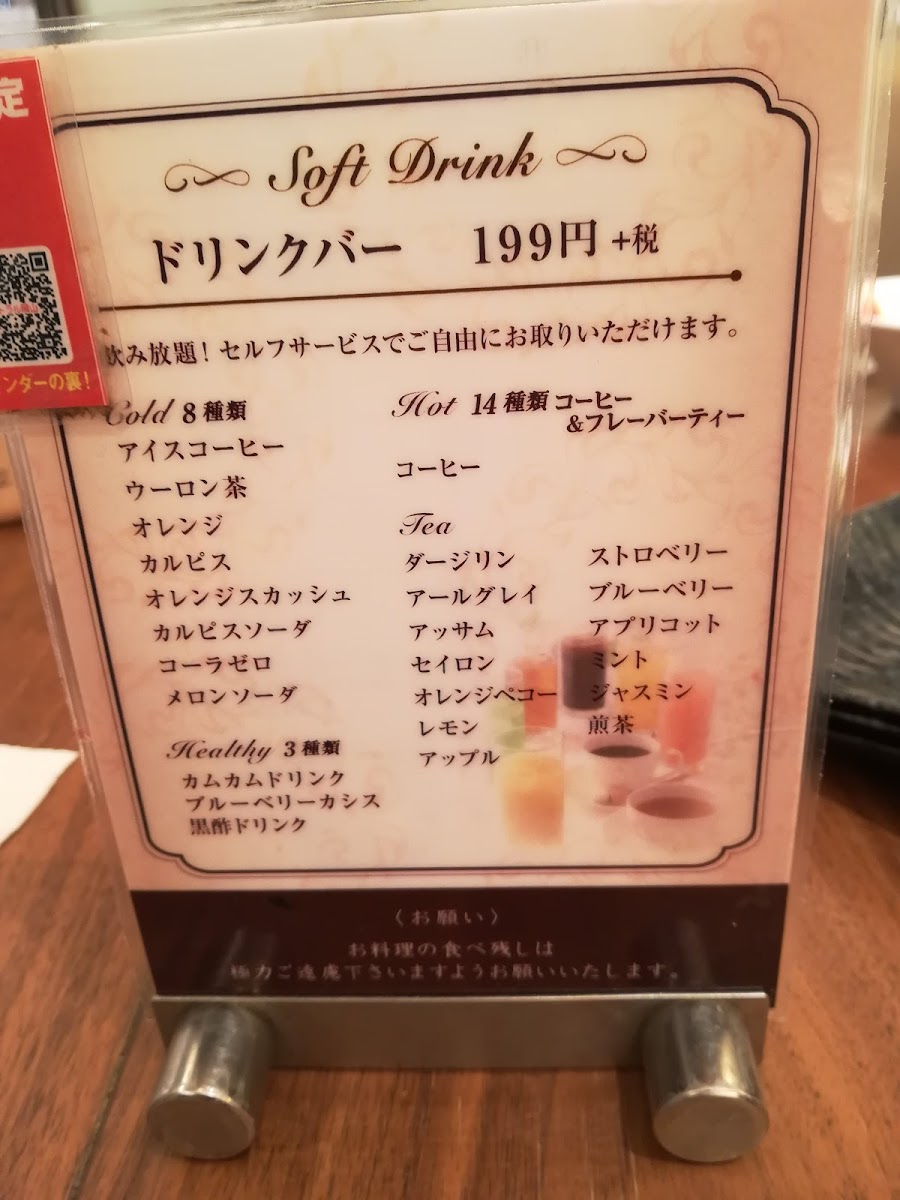 定
ンダーの裏！
Soft Drink
ドリンクバー 199円 +税
飲み放題！セルフサービスでご自由にお取りいただけます。
Cold 8種類
アイスコーヒー
ウーロン茶
オレンジ
カルピス
オレンジスカッシュ
カルピスソーダ
コーラゼロ
メロンソーダ
Healthy 3種類
カムカムドリンク
ブルーベリーカシス
黒酢ドリンク
Hot 14種類 コーヒー
&フレーバーティー
コーヒー
Tea
ダージリン
アールグレイ
アッサム
セイロン
オレンジペコー
レモン
アップル
ストロベリー
ブルーベリー
アプリコット
ミント
ジャスミン
煎茶
〈お願い〉
お料理の食べ残しは
極力ご遠慮下さいますようお願いいたします。